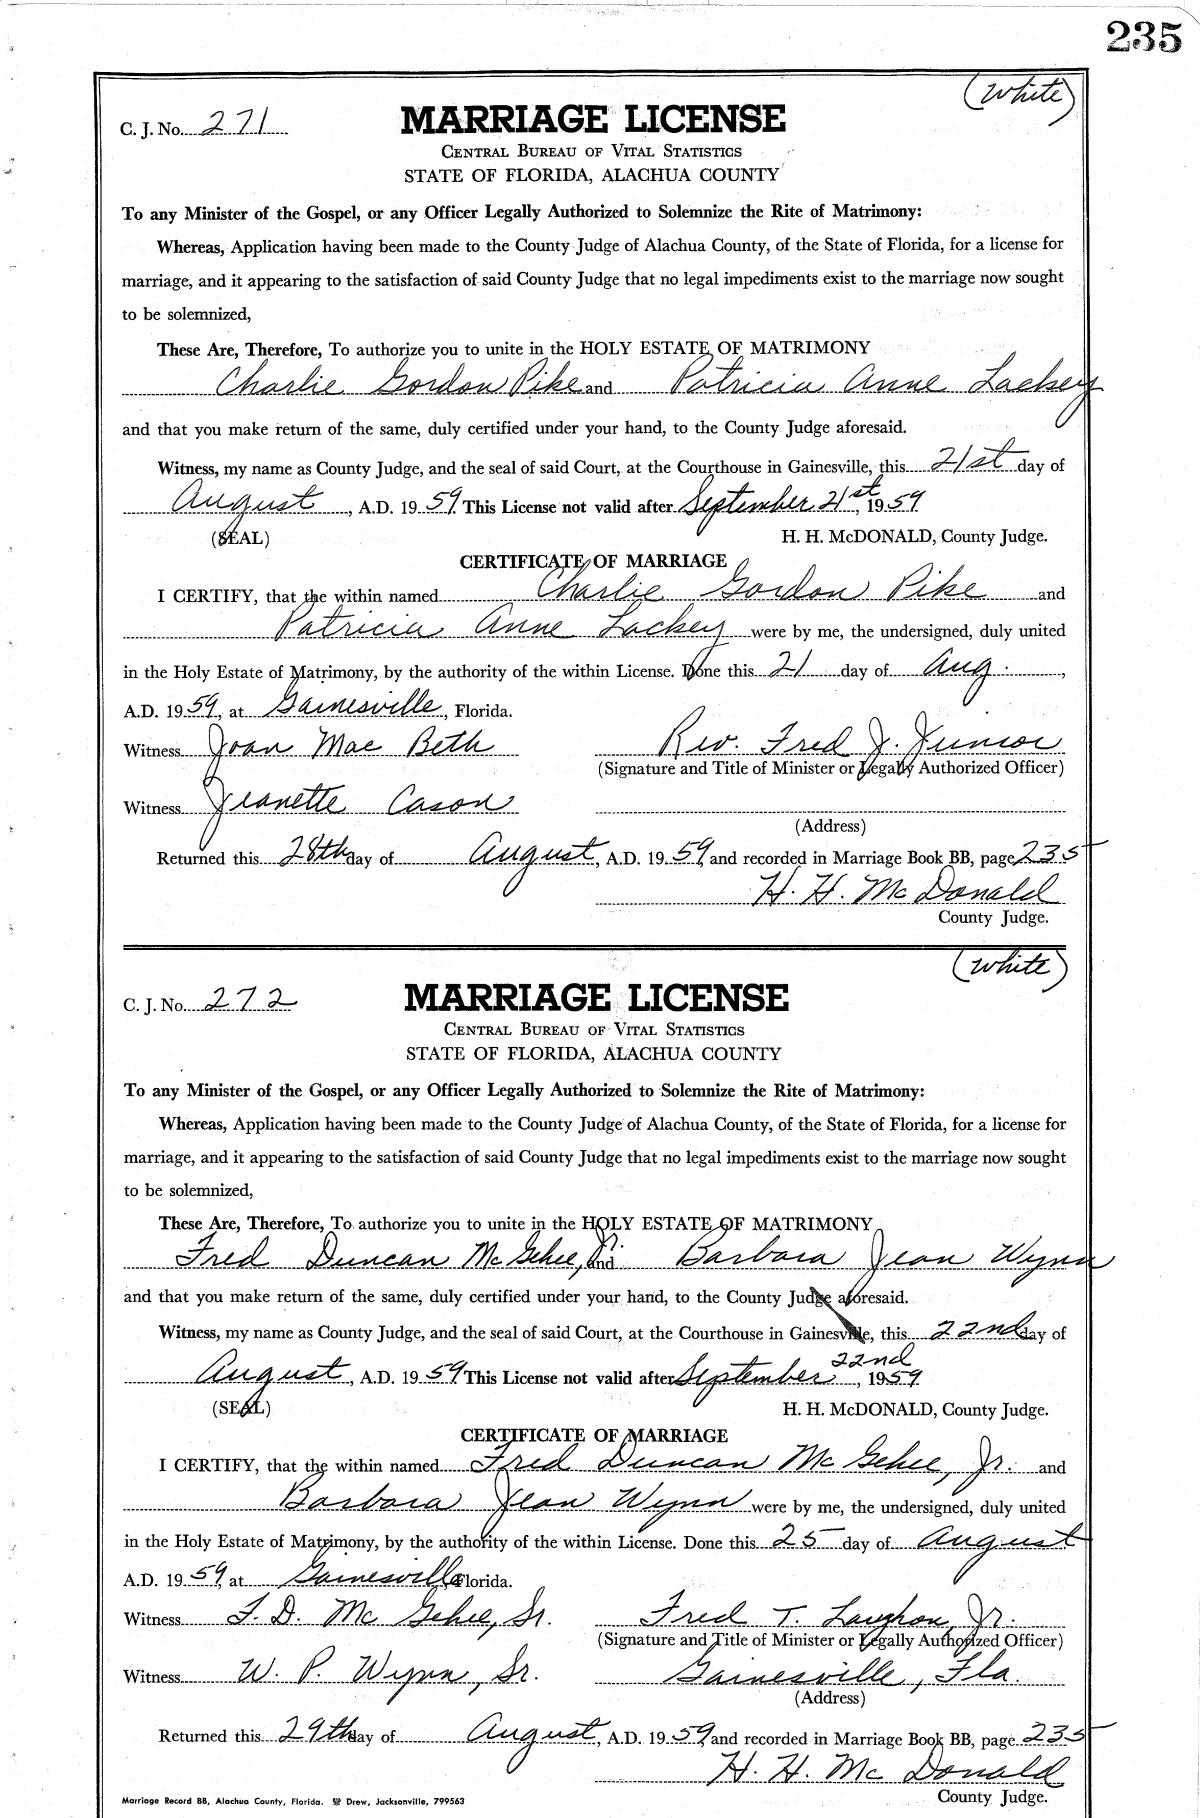 235
(White)
C. J. No. 271
MARRIAGE LICENSE
CENTRAL BUREAU OF VITAL STATISTICS
STATE OF FLORIDA, ALACHUA COUNTY
To any Minister of the Gospel, or any Officer Legally Authorized to Solemnize the Rite of Matrimony:
Whereas, Application having been made to the County Judge of Alachua County, of the State of Florida, for a license for
marriage, and it appearing to the satisfaction of said County Judge that no legal impediments exist to the marriage now sought
to be solemnized,
These Are, Therefore, To authorize you to unite in the HOLY ESTATE OF MATRIMONY
Charlie Gordon Pike and Patricia Anne Lackey
and that you make return of the same, duly certified under your hand, to the County Judge aforesaid.
Witness, my name as County Judge, and the seal of said Court, at the Courthouse in Gainesville, this 21st day of
August, A.D. 1959 This License not valid after September 21st, 1959
(SEAL) H. H. McDONALD, County Judge.
CERTIFICATE OF MARRIAGE
I CERTIFY, that the within named Charlie Gordon Pike and
Patricia Anne Lackey were by me, the undersigned, duly united
in the Holy Estate of Matrimony, by the authority of the within License. Done this 21 day of Aug.,
A.D. 1959, at Gainesville, Florida.
Witness Joan Mae Beth Rev. Fred J. Junior
(Signature and Title of Minister or Legally Authorized Officer)
Witness Jeanette Cason
(Address)
Returned this 28th day of August, A.D. 1959, and recorded in Marriage Book BB, page 235
H. H. McDonald
County Judge.
(White)
C. J. No. 272
MARRIAGE LICENSE
CENTRAL BUREAU OF VITAL STATISTICS
STATE OF FLORIDA, ALACHUA COUNTY
To any Minister of the Gospel, or any Officer Legally Authorized to Solemnize the Rite of Matrimony:
Whereas, Application having been made to the County Judge of Alachua County, of the State of Florida, for a license for
marriage, and it appearing to the satisfaction of said County Judge that no legal impediments exist to the marriage now sought
to be solemnized,
These Are, Therefore, To authorize you to unite in the HOLY ESTATE OF MATRIMONY
Fred Duncan McGehee, Jr. and Barbara Jean Wynn
and that you make return of the same, duly certified under your hand, to the County Judge aforesaid.
Witness, my name as County Judge, and the seal of said Court, at the Courthouse in Gainesville, this 22nd day of
August, A.D. 1959 This License not valid after September 22nd, 1959
(SEAL) H. H. McDONALD, County Judge.
CERTIFICATE OF MARRIAGE
I CERTIFY, that the within named Fred Duncan McGehee, Jr. and
Barbara Jean Wynn were by me, the undersigned, duly united
in the Holy Estate of Matrimony, by the authority of the within License. Done this 25 day of August
A.D. 1959, at Gainesville, Florida.
Witness F. D. McGehee, Sr. Fred T. Laughon, Jr.
(Signature and Title of Minister or Legally Authorized Officer)
Witness W. P. Wynn, Sr. Gainesville, Fla.
(Address)
Returned this 29th day of August, A.D. 1959, and recorded in Marriage Book BB, page 235
H. H. McDonald
County Judge.
Marriage Record BB, Alachua County, Florida. Drew, Jacksonville, 799563